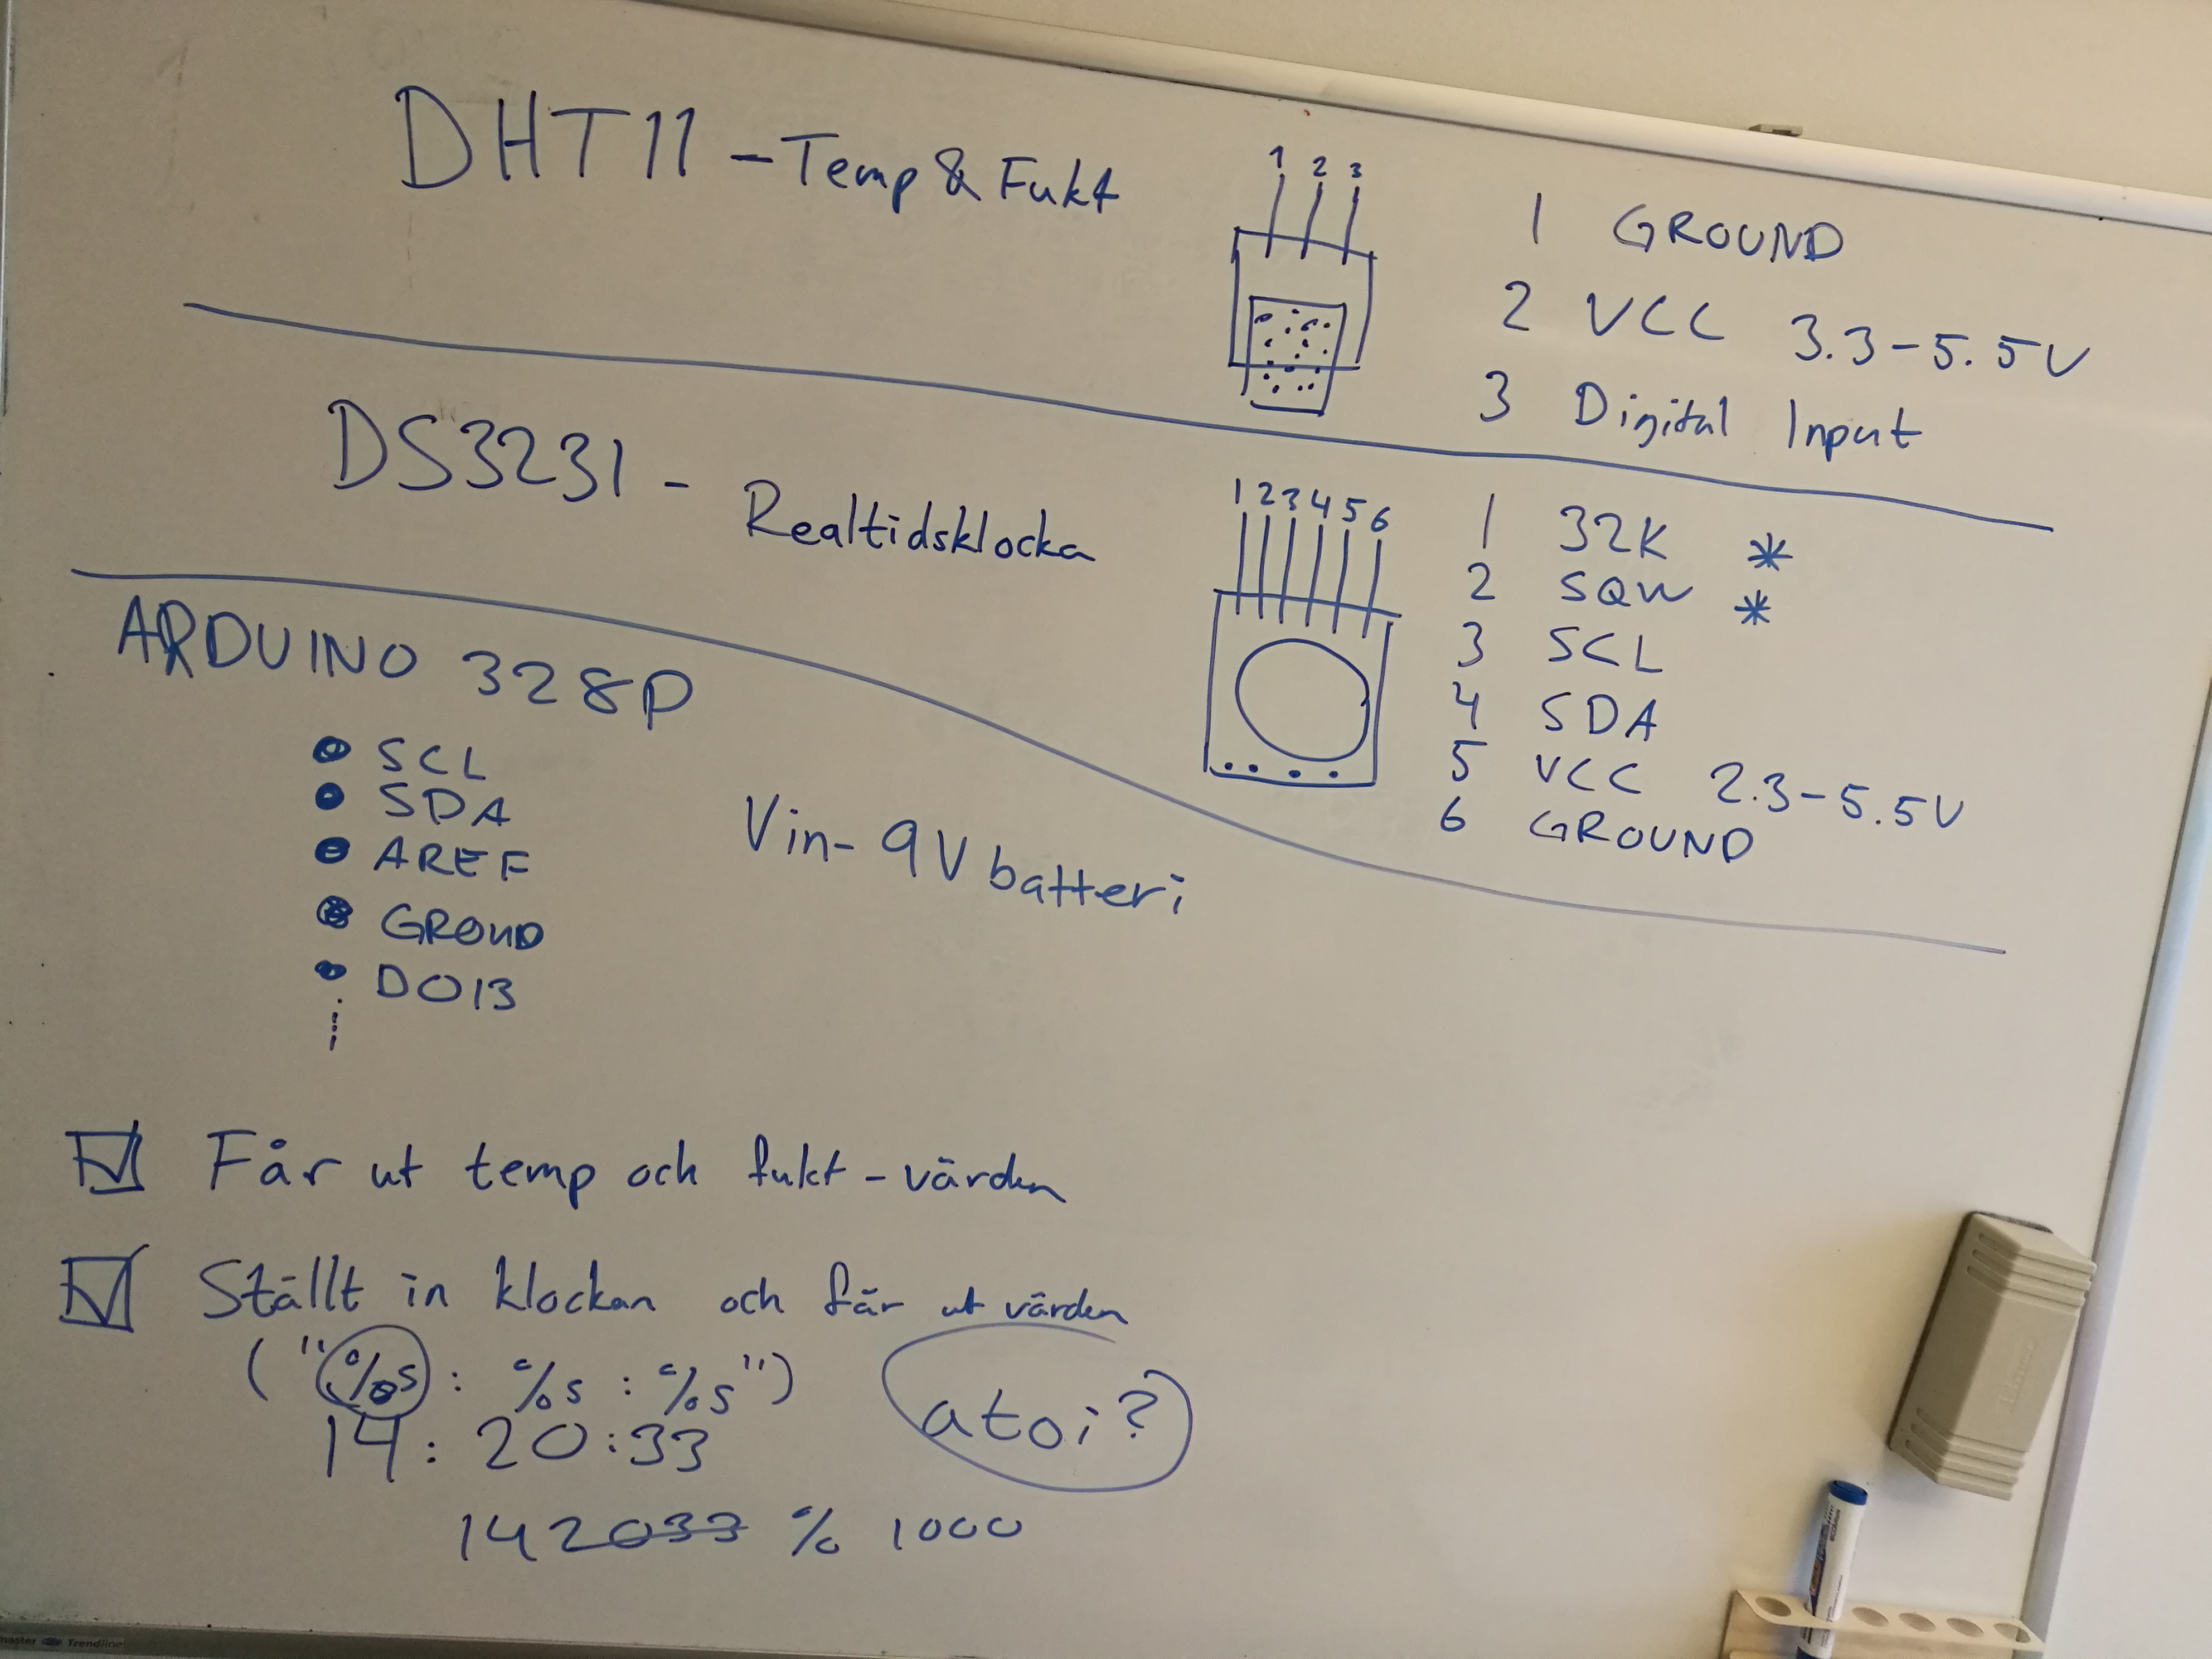 DHT11 - Temp & Fukt
1 2 3
1 GROUND
2 VCC 3.3-5.5V
3 Digital Input
DS3231 - Realtidsklocka
1 2 3 4 5 6
1 32K *
2 SQW *
3 SCL
4 SDA
5 VCC 2.3-5.5V
6 GROUND
ARDUINO 328P
SCL
SDA
AREF
GROUND
DO13
Vin- 9V batteri
Får ut temp och fukt-värden
Ställt in klockan och får ut värden
("%s : %s : %s")
14 : 20 : 33
atoi?
142033 % 1000
master Trendline